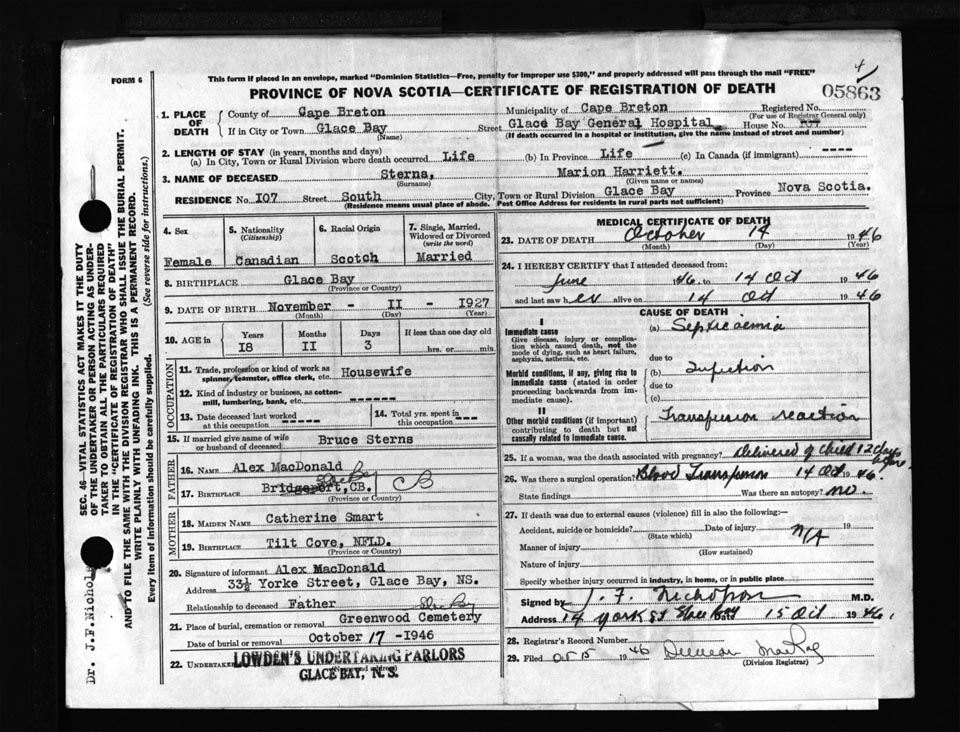 4
FORM 6
This form if placed in an envelope, marked "Dominion Statistics—Free, penalty for improper use $300," and properly addressed will pass through the mail "FREE"
PROVINCE OF NOVA SCOTIA—CERTIFICATE OF REGISTRATION OF DEATH
05863
1. PLACE OF DEATH
County of Cape Breton Municipality of Cape Breton Registered No.
(For use of Registrar General only)
If in City or Town Glace Bay Street Glace Bay General Hospital House No. 107
(Name) (If death occurred in a hospital or institution, give the name instead of street and number)
2. LENGTH OF STAY (in years, months and days)
(a) In City, Town or Rural Division where death occurred Life (b) In Province Life (c) In Canada (if immigrant) ----
3. NAME OF DECEASED Sterns, Marion Harriett.
(Surname) (Given name or names)
RESIDENCE No. I07 Street South City, Town or Rural Division Glace Bay Province Nova Scotia.
(Residence means usual place of abode. Post Office Address for residents in rural parts not sufficient)
4. Sex
Female
5. Nationality
(Citizenship)
Canadian
6. Racial Origin
Scotch
7. Single, Married, Widowed or Divorced
(write the word)
Married
8. BIRTHPLACE Glace Bay
(Province or Country)
9. DATE OF BIRTH November - II - 1927
(Month) (Day) (Year)
10. AGE in Years Months Days If less than one day old
I8 II 3 hrs. or min.
OCCUPATION
11. Trade, profession or kind of work as spinner, teamster, office clerk, etc. Housewife
12. Kind of industry or business, as cotton-mill, lumbering, bank, etc. ------
13. Date deceased last worked at this occupation ------
14. Total yrs. spent in this occupation ---
15. If married give name of wife or husband of deceased Bruce Sterns
FATHER
16. NAME Alex MacDonald
17. BIRTHPLACE Bridgeport, CB. Glace Bay CB
(Province or Country)
MOTHER
18. MAIDEN NAME Catherine Smart
19. BIRTHPLACE Tilt Cove, NFLD.
(Province or Country)
20. Signature of informant Alex MacDonald
Address 33½ Yorke Street, Glace Bay, NS.
Relationship to deceased Father
Glace Bay
21. Place of burial, cremation or removal Greenwood Cemetery
Date of burial or removal October 17 -1946
22. UNDERTAKER LOWDEN'S UNDERTAKING PARLORS
GLACE BAY, N. S.
MEDICAL CERTIFICATE OF DEATH
23. DATE OF DEATH October 14 1946
(Month) (Day) (Year)
24. I HEREBY CERTIFY that I attended deceased from:
June 1946 to 14 Oct 1946
and last saw her alive on 14 Oct 1946
CAUSE OF DEATH
I
Immediate cause
Give disease, injury or complication which caused death, not the mode of dying, such as heart failure, asphyxia, asthenia, etc.
(a) Septicaemia
due to
Morbid conditions, if any, giving rise to immediate cause (stated in order proceeding backwards from immediate cause).
(b) Infection
due to
(c)
II
Other morbid conditions (if important) contributing to death but not causally related to immediate cause.
Transfusion reaction
25. If a woman, was the death associated with pregnancy? Delivered of child 12 days before.
26. Was there a surgical operation? Blood Transfusion 14 Oct 1946.
State findings Was there an autopsy? no.
27. If death was due to external causes (violence) fill in also the following:—
Accident, suicide or homicide? Date of injury N/A 19
(State which)
Manner of injury
(How sustained)
Nature of injury
Specify whether injury occurred in industry, in home, or in public place
Signed by J. F. Nicholson M.D.
Address 14 York St Glace Bay Date 15 Oct 1946.
28. Registrar's Record Number
29. Filed Oct 15 1946 Duncan MacKay
(Division Registrar)
SEC. 46—VITAL STATISTICS ACT MAKES IT THE DUTY
OF THE UNDERTAKER OR PERSON ACTING AS UNDER-
TAKER TO OBTAIN ALL THE PARTICULARS REQUIRED
IN THE "CERTIFICATE OF REGISTRATION OF DEATH"
AND TO FILE THE SAME WITH THE DIVISION REGISTRAR WHO SHALL ISSUE THE BURIAL PERMIT.
WRITE PLAINLY WITH UNFADING INK. THIS IS A PERMANENT RECORD.
Every item of information should be carefully supplied. (See reverse side for instructions.)
Dr. J.F.Nichols